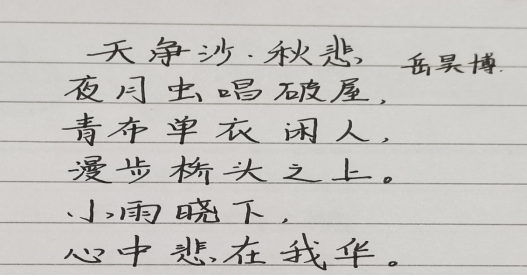 天净沙·秋悲 岳昊博
夜月虫唱破屋,
青布单衣闲人,
漫步桥头之上。
小雨晓下,
心中悲在我华。